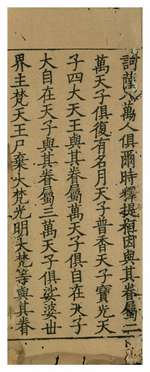 訶薩八萬人俱爾時釋提桓因與其眷屬二
萬天子俱復有名月天子普香天子寶光天
子四大天王與其眷屬萬天子俱自在天子
大自在天子與其眷屬三萬天子俱娑婆世
界主梵天王尸棄大梵光明大梵等與其眷